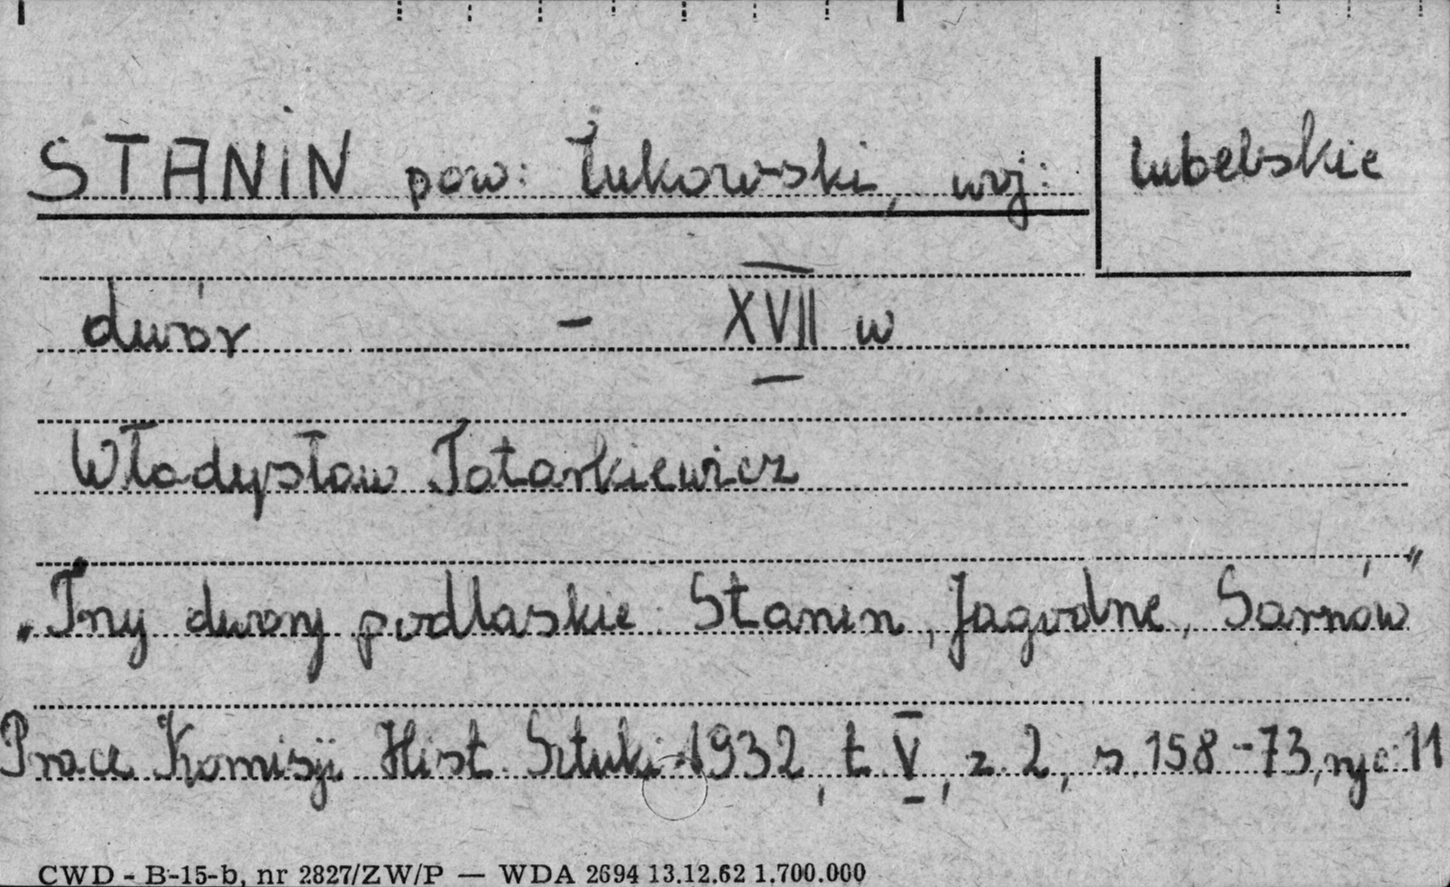 STANIN pow: Łukowski, woj: lubelskie
dwór - XVII w
Władysław Tatarkiewicz
„Trzy dwory podlaskie: Stanin, Jagodne, Sarnów”
Prace Komisji Hist. Sztuki 1932, t. V, z. 2, s. 158-73, ryc: 11
CWD - B-15-b, nr 2827/ZW/P — WDA 2694 13.12.62 1.700.000